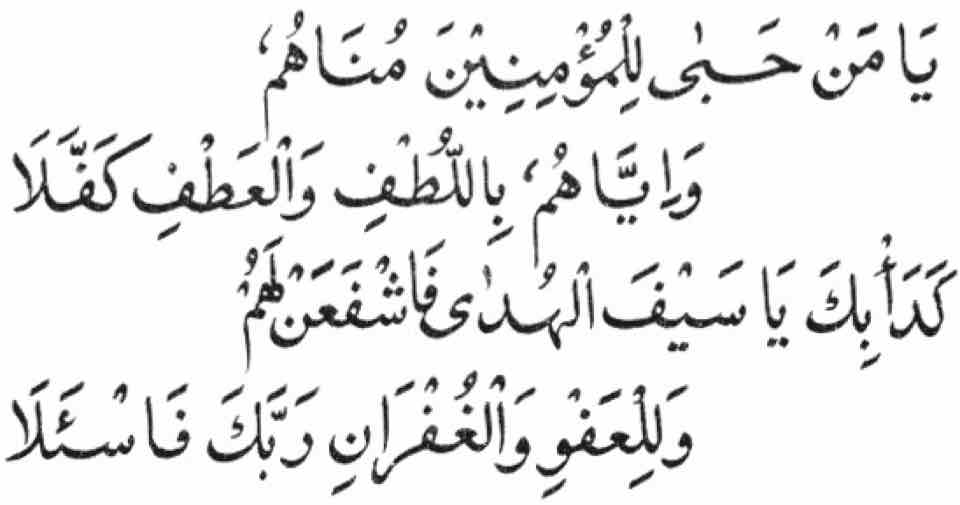 يَا مَنْ حَبٰى لِلْمُؤْمِنِيْنَ مُنَاهُمُ
وَاِيَّاهُمُ بِاللُّطْفِ وَالْعَطْفِ كَفَّلَا
كَدَأْبِكَ يَا سَيْفَ الْهُدٰى فَاشْفَعَنْ لَهُمْ
وَلِلْعَفْوِ وَالْغُفْرَانِ رَبَّكَ فَاسْئَلَا